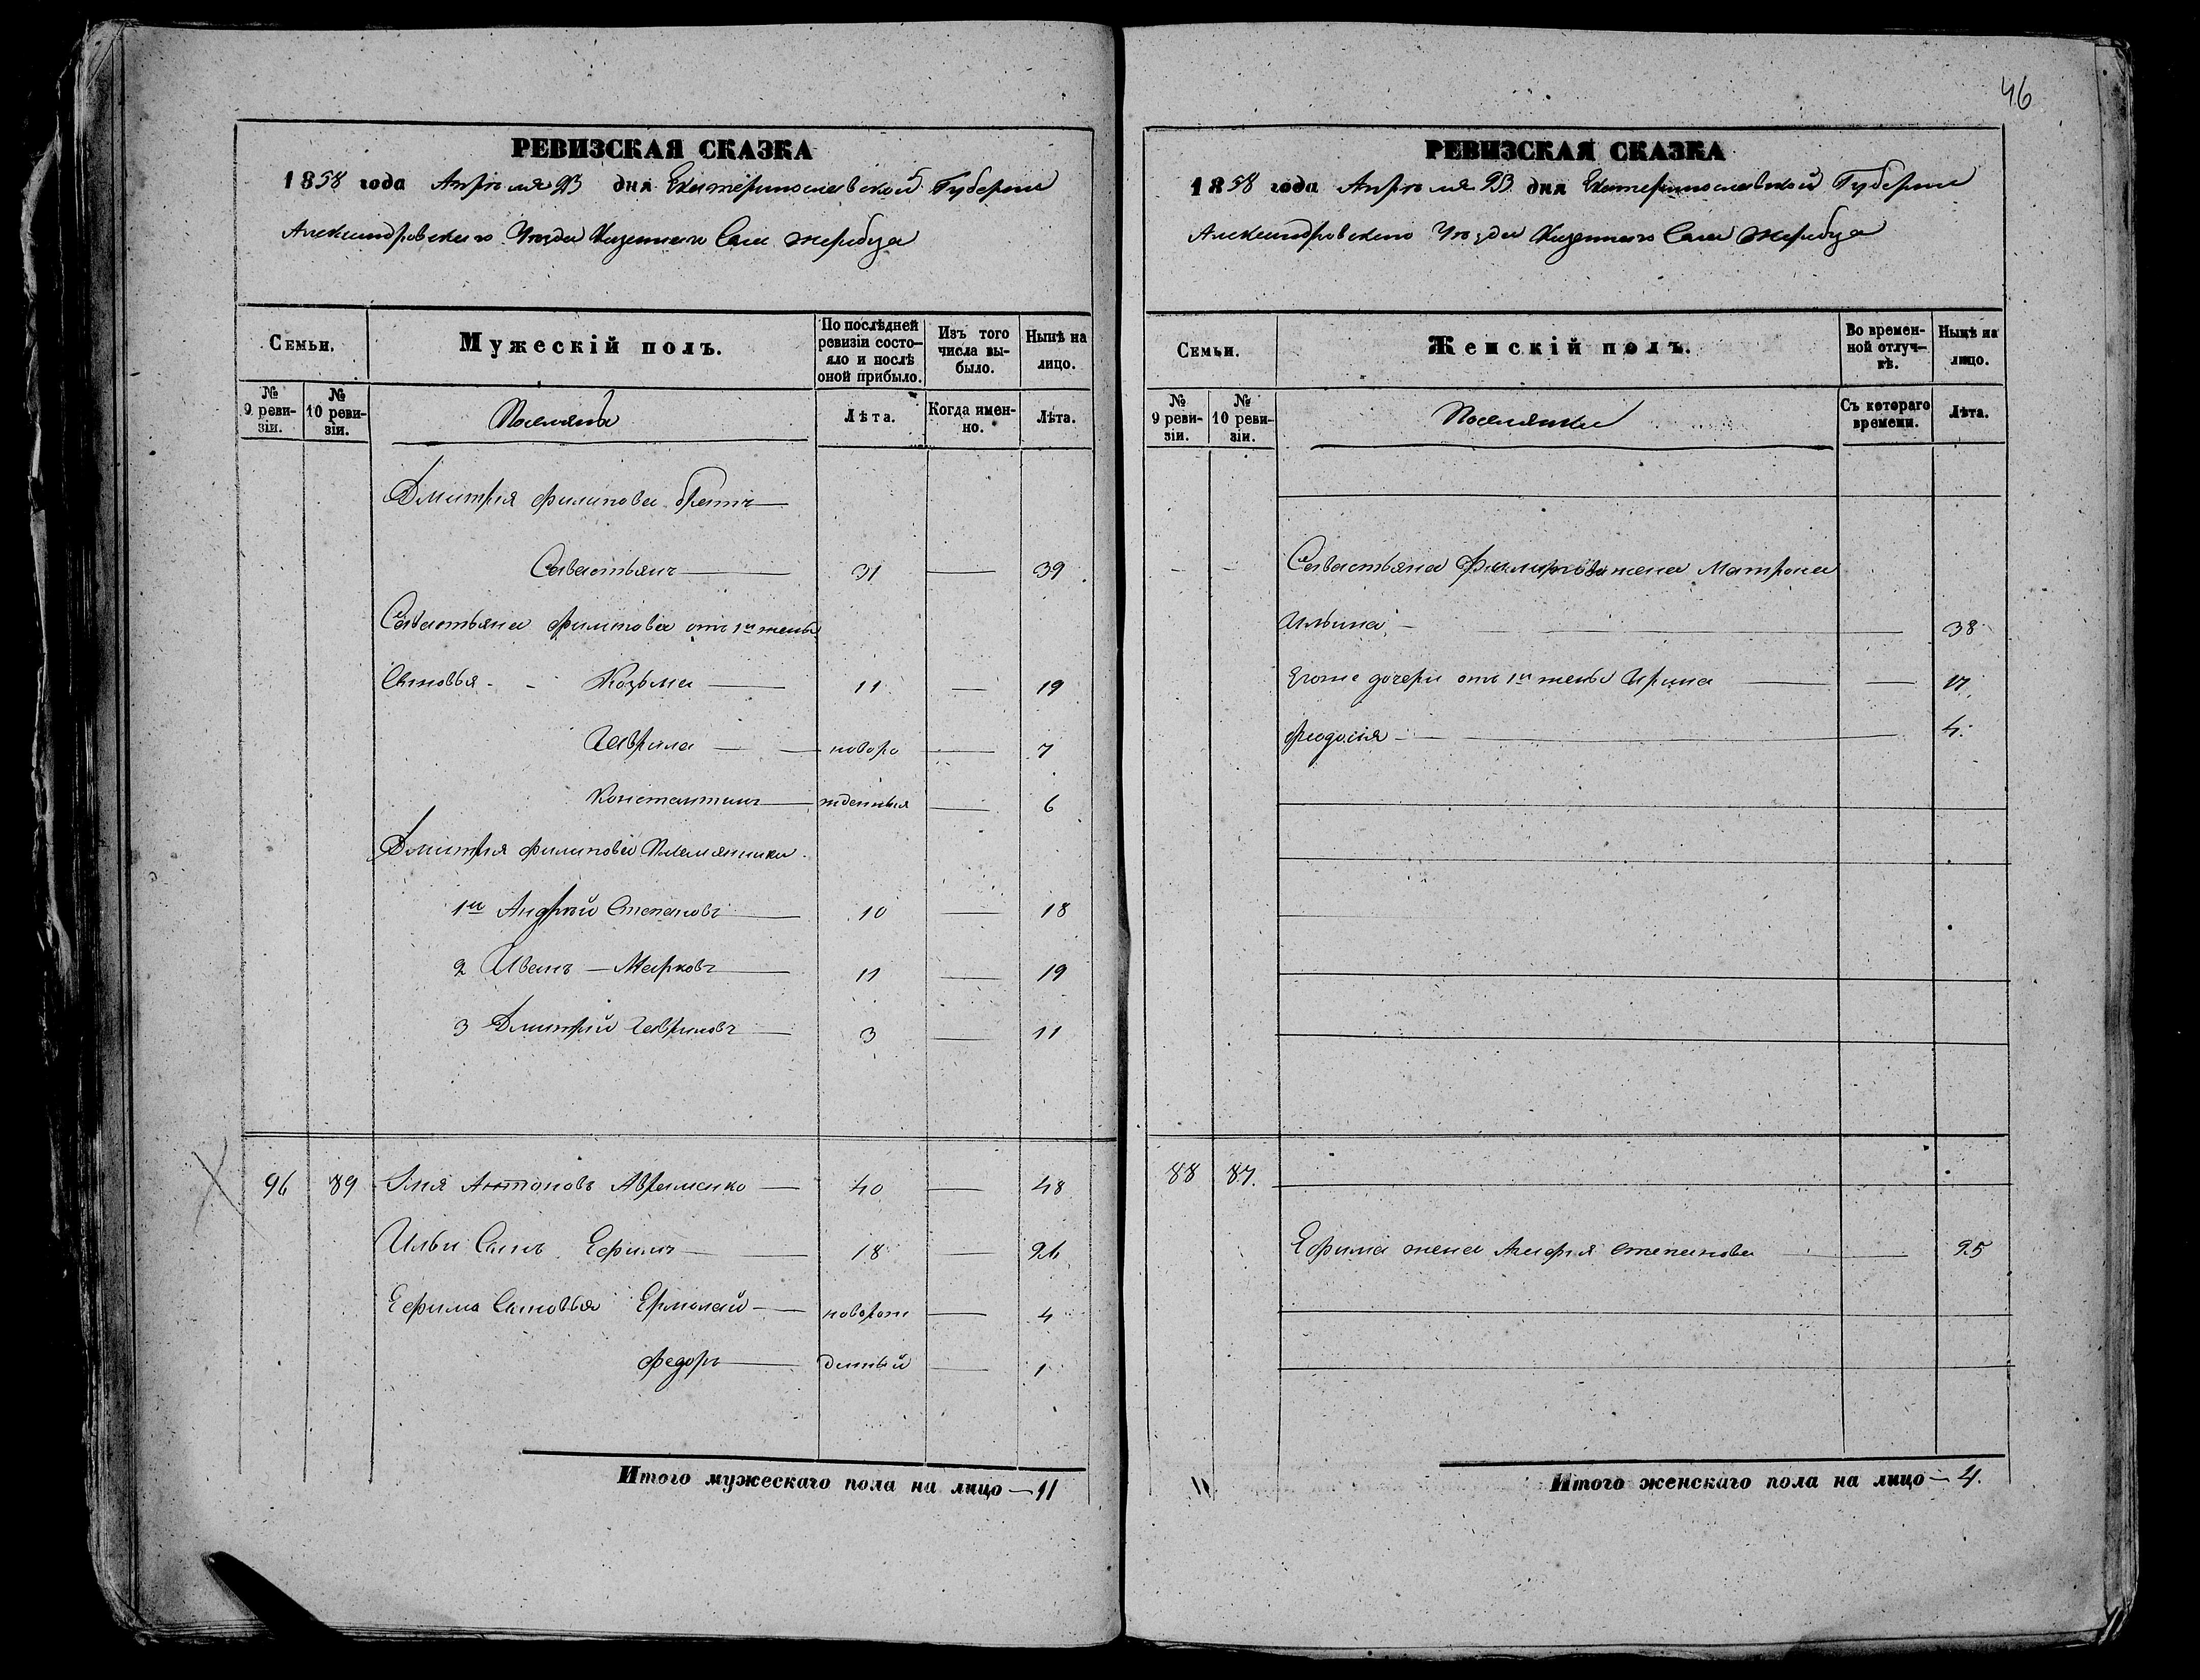 46
РЕВИЗСКАЯ СКАЗКА
1858 года Апреля 23 дня Екатеринославской Губернии
Александровского Уезда Казенного Села Жеребца
Семьи.
Мужескій полъ.
По послѣдней ревизіи состояло и послѣ оной прибыло.
Изъ того числа выбыло.
Нынѣ на лицо.
№ 9 ревизіи.
№ 10 ревизіи.
Поселяны
Лѣта.
Когда именно.
Лѣта.
Дмитрия Филипова братъ
Савастьянъ 31 39
Савастьяна Филипова отъ 1й жены
Сыновья Козьма 11 19
Гаврила новоро 7
Константинъ жденныя 6
Дмитрия Филипова Племянники
1й Андрей Степановъ 10 18
2 Иванъ Марковъ 11 19
3 Дмитрій Гавриловъ 3 11
96 89 Илья Антоновъ Авраменко 40 48
Ильи Сынъ Ефимъ 18 26
Ефима Сыновья Ермолай новорож 4
Федоръ денный 1
Итого мужескаго пола на лицо — 11
РЕВИЗСКАЯ СКАЗКА
1858 года Апреля 23 дня Екатеринославской Губернии
Александровского Уезда Казенного Села Жеребца
Семьи.
Женскій полъ.
Во временной отлучкѣ.
Нынѣ на лицо.
№ 9 ревизіи.
№ 10 ревизіи.
Поселянки
Съ котораго времени.
Лѣта.
Савастьяна Филипова жена Матрона
Ильина 38
Егоже дочери отъ 1й жены Ирина 17
Феодосія 4
88 87.
Ефима жена Агафия Степанова 25
Итого женскаго пола на лицо — 4.